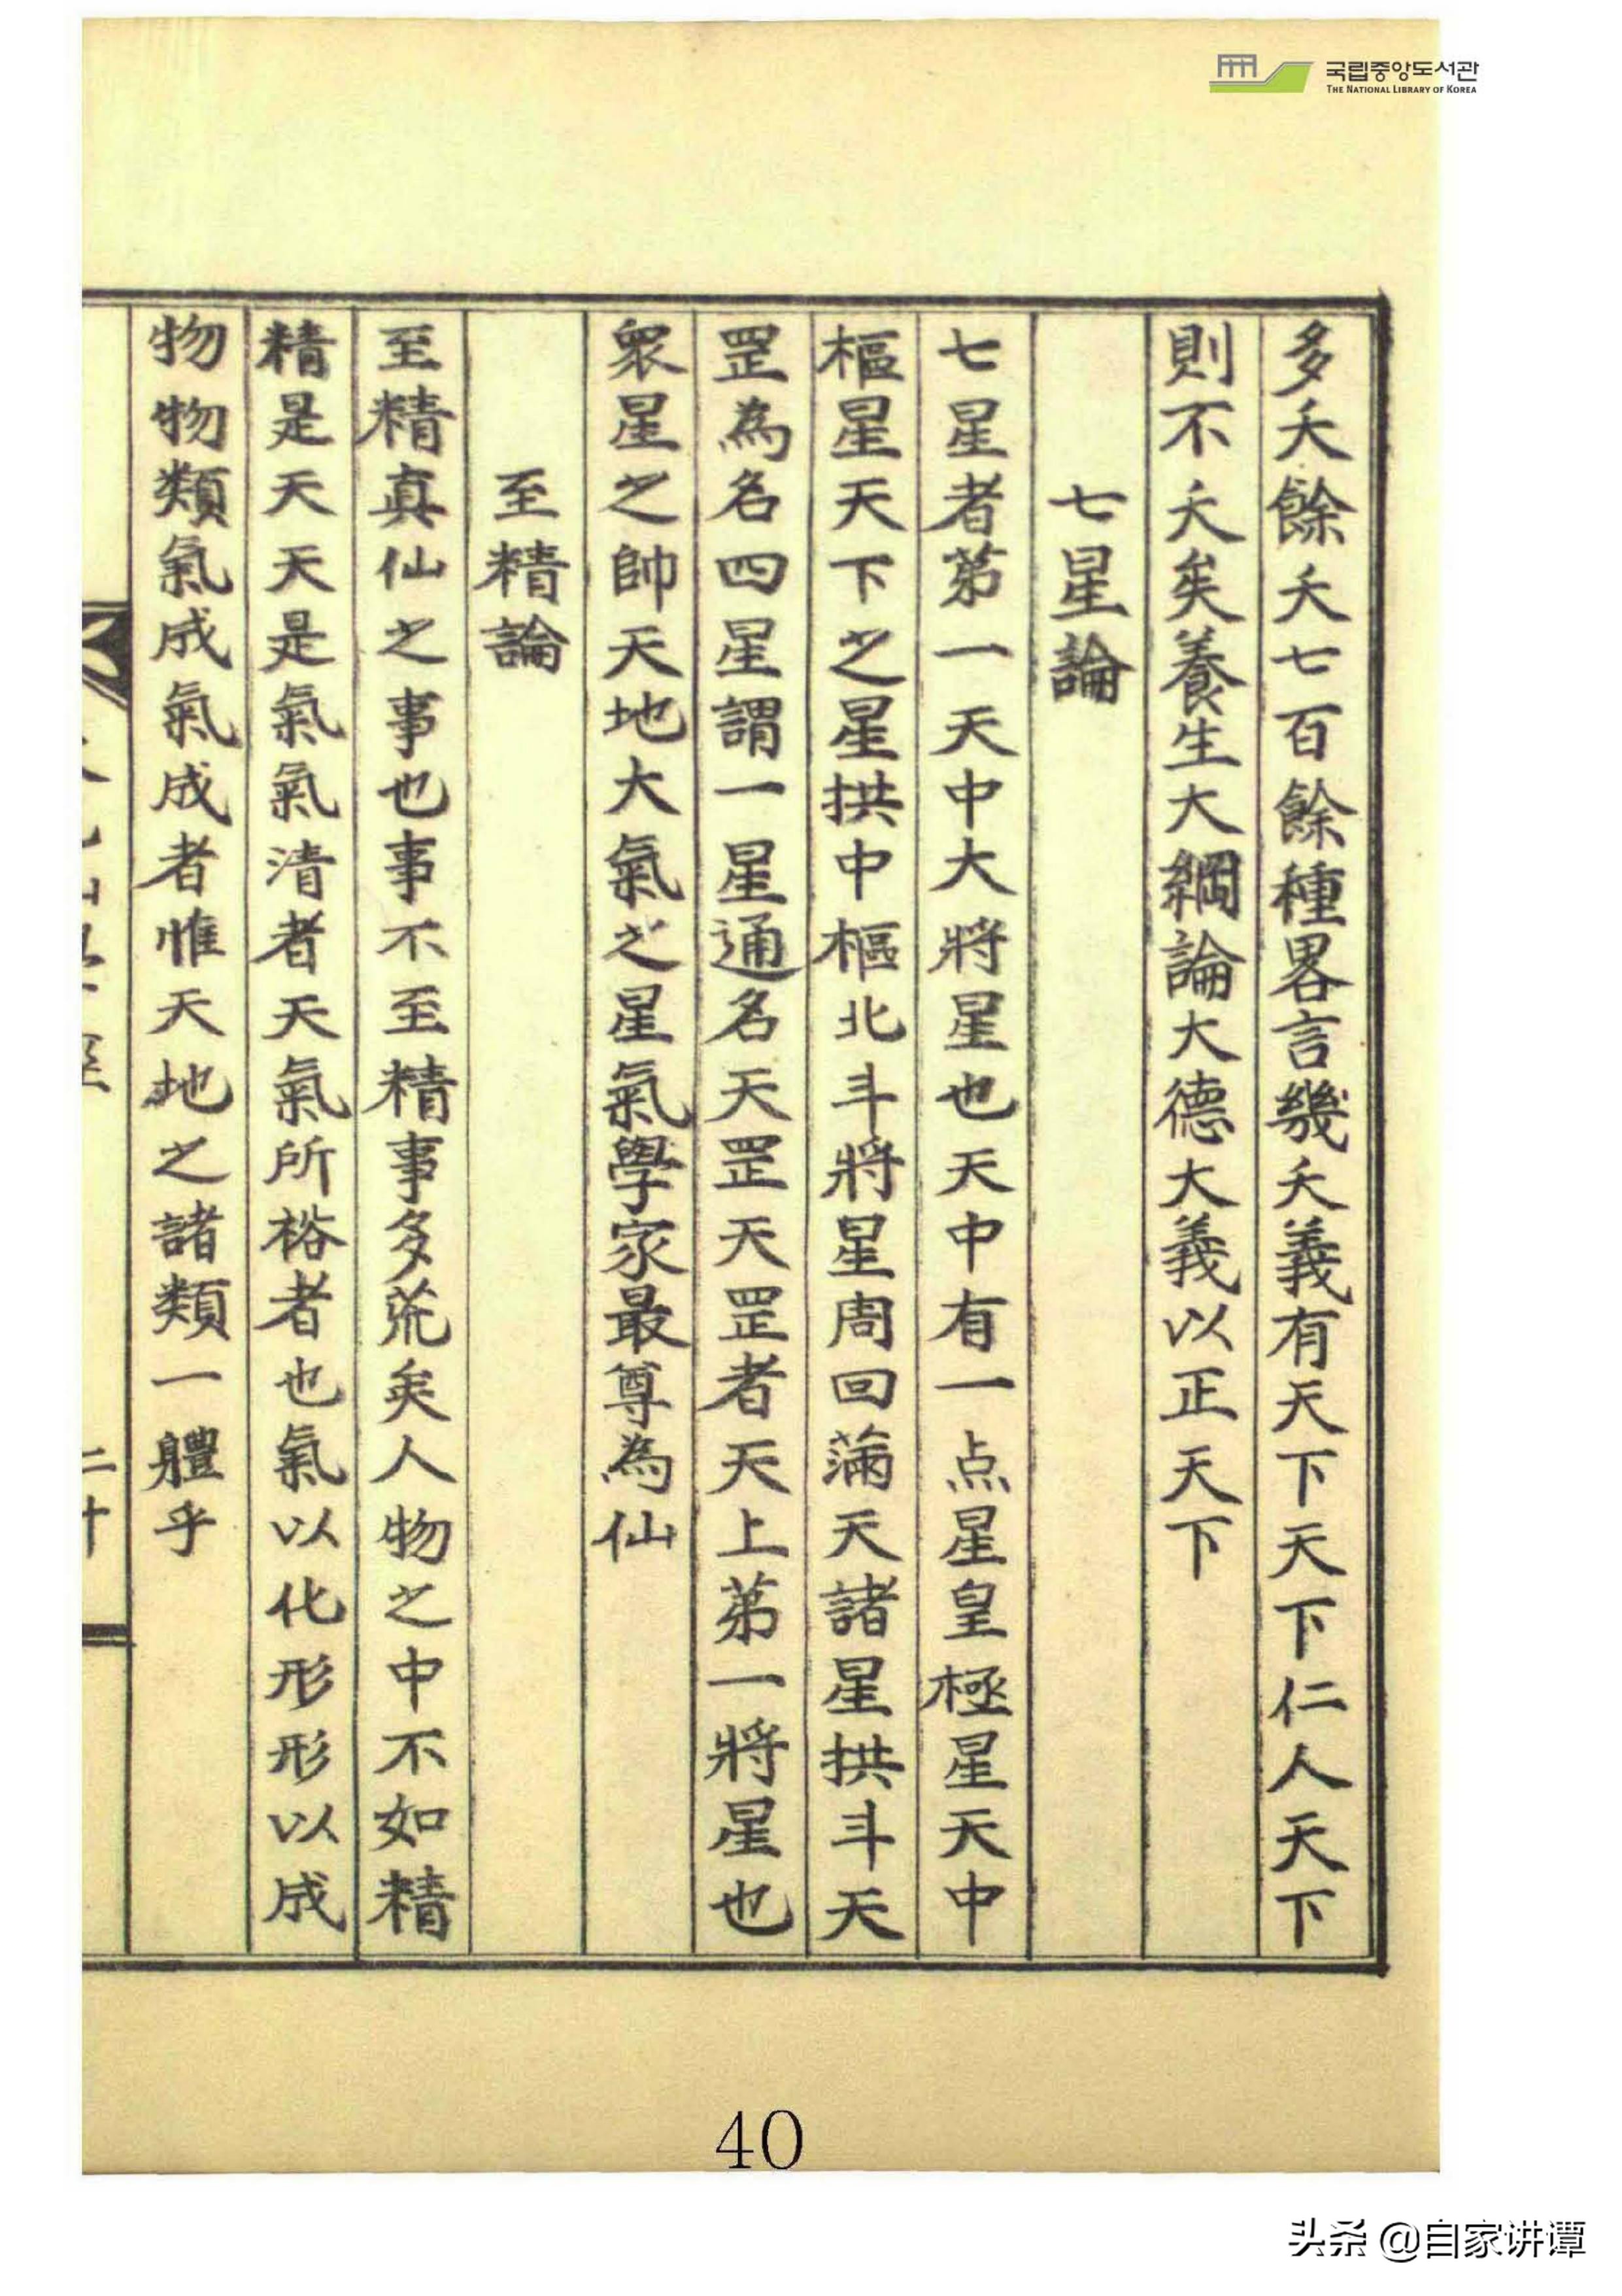 국립중앙도서관
THE NATIONAL LIBRARY OF KOREA
多夭餘夭七百餘種畧言幾夭義有天下天下仁人天下
則不夭矣養生大綱論大德大義以正天下
七星論
七星者苐一天中大將星也天中有一点星皇極星天中
樞星天下之星拱中樞北斗將星周回滿天諸星拱斗天
罡為名四星謂一星通名天罡天罡者天上苐一將星也
衆星之帥天地大氣之星氣學家最尊為仙
至精論
至精真仙之事也事不至精事多荒矣人物之中不如精
精是天天是氣氣清者天氣所裕者也氣以化形形以成
物物類氣成氣成者惟天地之諸類一軆乎
二十
40
头条 @自家讲谭